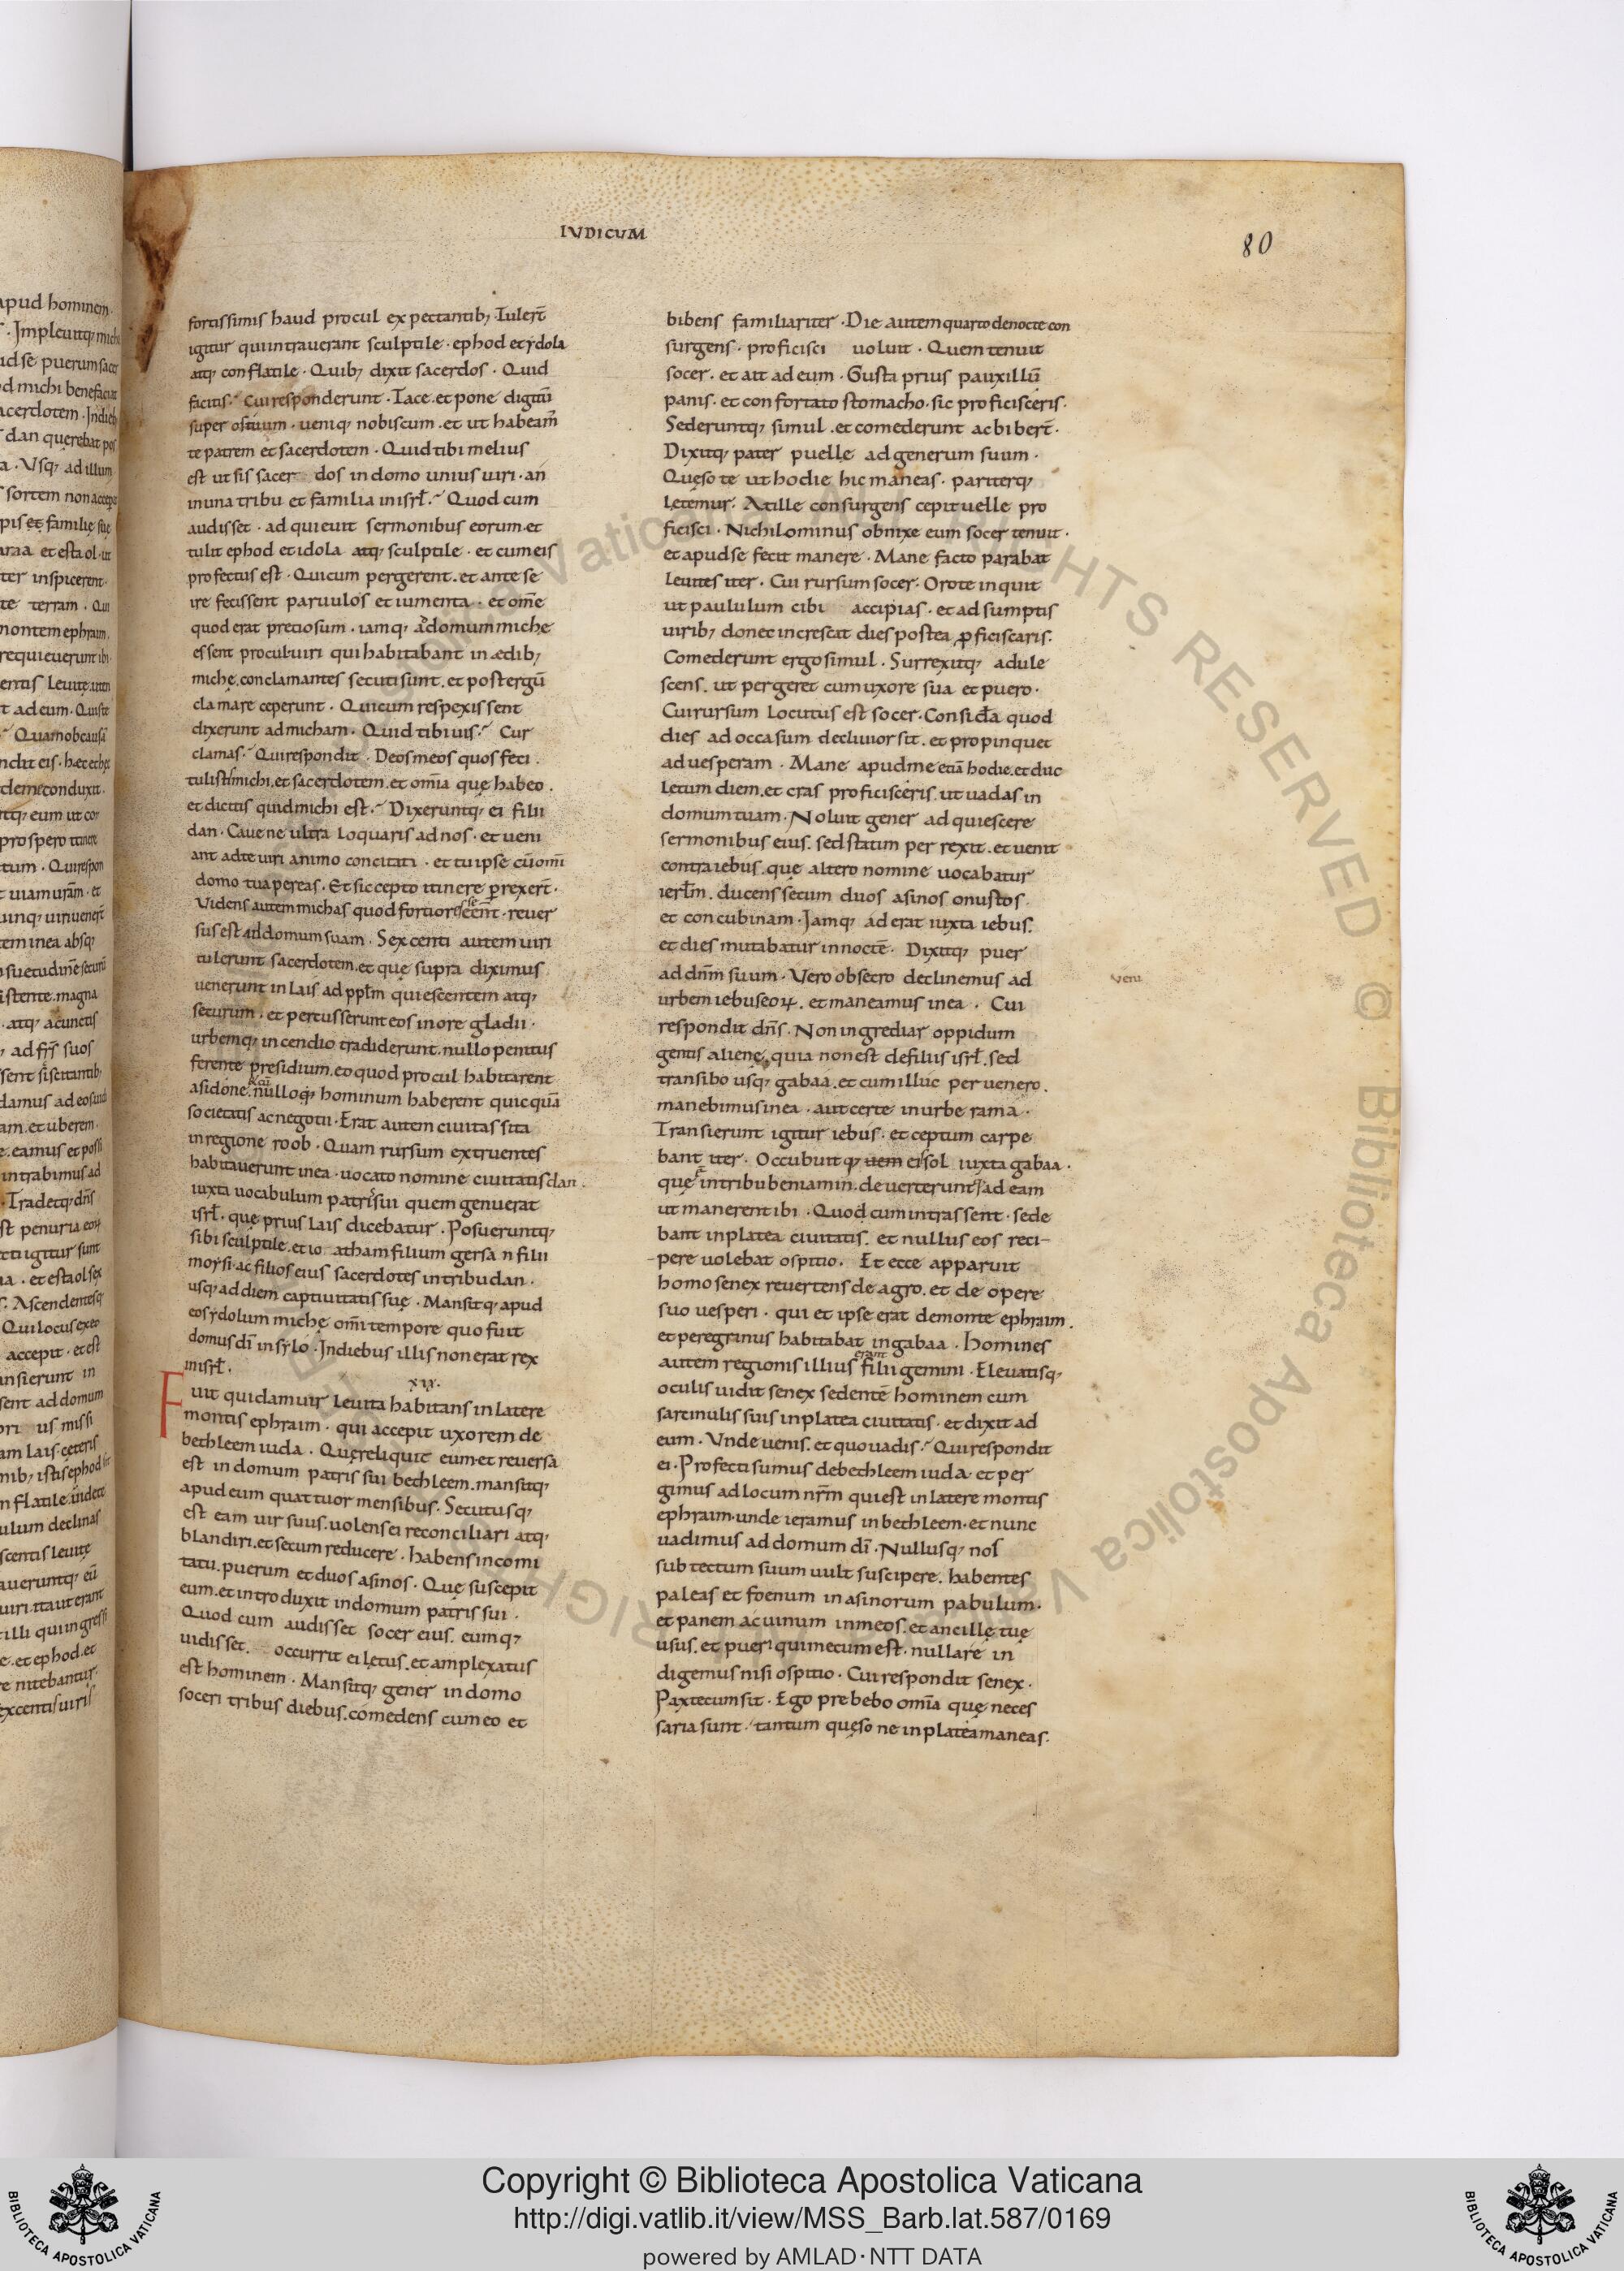 IVDICUM
80
fortissimis haud procul expectantib; Tulert̄
igitur qui intrauerant sculptile · ephod et ydola
atq; conflatile · Quib; dixit sacerdos · Quid
facitis? Cui responderunt · Tace et pone digitū
super ostiuum · uenιq; nobiscum · et ut habeam̄
te patrem et sacerdotem · Quid tibi melius
est ut sis sacer dos in domo unius uiri · an
in una tribu et familia in isrł? Quod cum
audisset · adquieuit sermonibus eorum · et
tulit ephod et idola atq; sculptile · et cum eis
profectus est · Qui cum pergerent · et ante se
ire fecissent paruulos et iumenta · et om̄e
quod erat preciosum · iamq; a domum miche
essent procul uiri qui habitabant in ædib;
miche · conclamantes secuti sunt · et post ergū
clamare ceperunt · Qui cum respexissent
dixerunt ad micham · Quid tibi uis? Cur
clamas? Qui respondit · Deos meos quos feci ·
tulisti michi · et sacerdotem · et om̄ia quę habeo ·
et dicitis quid michi est? Dixeruntq; ei filii
dan · Caue ne ultra loquaris ad nos · et ueni
ant ad te uiri animo concitati · et tu ipse cū om̄i
domo tua pereas · Et sic cepto itinere perrexert̄ ·
Videns autem michas quod fortiores se eēnt · reuer
sus est ad domum suam · Sexcenti autem uiri
tulerunt sacerdotem · et quę supra diximus
uenerunt in lais ad pplm̄ quiescentem atq;
securum · et percusserunt eos in ore gladii ·
urbemq; incendio tradiderunt · nullo penitus
ferente presidium · eo quod procul habitarent
a sidone · & cū nulloq; hominum haberent quicquā
societatis ac negotii · Erat autem ciuitas sita
in regione roob · Quam rursum extruentes
habitauerunt in ea · uocato nomine ciuitatis dan ·
iuxta uocabulum patris sui quem genuerat
isrł · quę prius lais dicebatur · Posueruntq;
sibi sculptile · et io atham filium gersan filii
moysi · ac filios eius sacerdotes in tribu dan ·
usq; ad diem captiuitatis suę · Mansitq; apud
eos ydolum michę om̄i tempore quo fuit
domus dī in sylo · In diebus illis non erat rex
in isrł ·
xιx ·
Fuit quidam uir leuita habitans in latere
montis ephraim · qui accepit uxorem de
bethleem iuda · Quę reliquit eum · et reuersa
est in domum patris sui bethleem · mansitq;
apud eum quattuor mensibus · Secutusq;
est eam uir suus · uolens ei reconciliari atq;
blandiri · et secum reducere · habens in comi
tatu · puerum et duos asinos · Quę suscepit
eum · et introduxit in domum patris sui ·
Quod cum audisset socer eius · eumq;
uidisset · occurrit ei lętus · et amplexatus
est hominem · Mansitq; gener in domo
soceri tribus diebus · comedens cum eo et
bibens familiariter · Die autem quarto de nocte con
surgens · proficisci uoluit · Quem tenuit
socer · et ait ad eum · Gusta prius pauxillū
panis · et confortato stomacho · sic proficisceris ·
Sederuntq; simul · et comederunt ac bibert̄ ·
Dixitq; pater puelle ad generum suum ·
Quęso te ut hodie hic maneas · pariterq;
letemur · At ille consurgens cepit uelle pro
ficisci · Nichilominus obnixe eum socer tenuit ·
et apud se fecit manere · Mane facto parabat
leuites iter · Cui rursum socer · Oro te inquit
ut paululum cibi accipias · et adsumptis
uirib; donec increscat dies postea ꝓficiscaris ·
Comederunt ergo simul · Surrexitq; adule
scens · ut pergeret cum uxore sua et puero ·
Cui rursum locutus est socer · Considera quod
dies ad occasum decliuior sit · et propinquet
ad uesperam · Mane apud me etiā hodie · et duc
letum diem · et cras proficisceris · ut uadas in
domum tuam · Noluit gener adquiescere
sermonibus eius · sed statim perrexit · et uenit
contra iebus · quę altero nomine uocabatur
ierłm · ducens secum duos asinos onustos
et concubinam · Iamq; aderat iuxta iebus ·
et dies mutabatur in noctē · Dixitq; puer
ad dn̄m suum · Vero obsecro declinemus ad
ueni
urbem iebuseoꝝ · et maneamus in ea · Cui
respondit dn̄s · Non ingrediar oppidum
gentis alienę · quia non est de filiis isrł · sed
transibo usq; gabaa · et cum illuc peruenero ·
manebimus in ea · aut certe in urbe rama ·
Transierunt igitur iebus · et ceptum carpe
bant iter · Occubuitq; uem eis sol iuxta gabaa ·
quę ē in tribu beniamin · deuerteruntq; ad eam
ut manerent ibi · Quod cum intrassent · sede
bant in platea ciuitatis · et nullus eos reci-
-pere uolebat ospitio · Et ecce apparuit
homo senex reuertens de agro · et de opere
suo uesperi · qui et ipse erat de monte ephraim ·
et peregrinus habitabat in gabaa · Homines
autem regionis illius erant filii gemini · Eleuatisq;
oculis uidit senex sedentē hominem cum
sarcinulis suis in platea ciuitatis · et dixit ad
eum · Vnde uenis · et quo uadis? Qui respondit
ei · Profecti sumus de bethleem iuda · et per
gimus ad locum nr̄m qui est in latere montis
ephraim · unde ieramus in bethleem · et nunc
uadimus ad domum dī · Nullusq; nos
sub tectum suum uult suscipere · habentes
paleas et foenum in asinorum pabulum ·
et panem ac uinum in meos · et ancillę tuę
usus · et pueri qui mecum est · nulla re in
digemus nisi ospitio · Cui respondit senex ·
Pax tecum sit · Ego prebebo om̄ia quę neces
saria sunt · tantum quęso ne in platea maneas ·
Copyright © Biblioteca Apostolica Vaticana
http://digi.vatlib.it/view/MSS_Barb.lat.587/0169
powered by AMLAD·NTT DATA
BIBLIOTECA APOSTOLICA VATICANA
BIBLIOTECA APOSTOLICA VATICANA